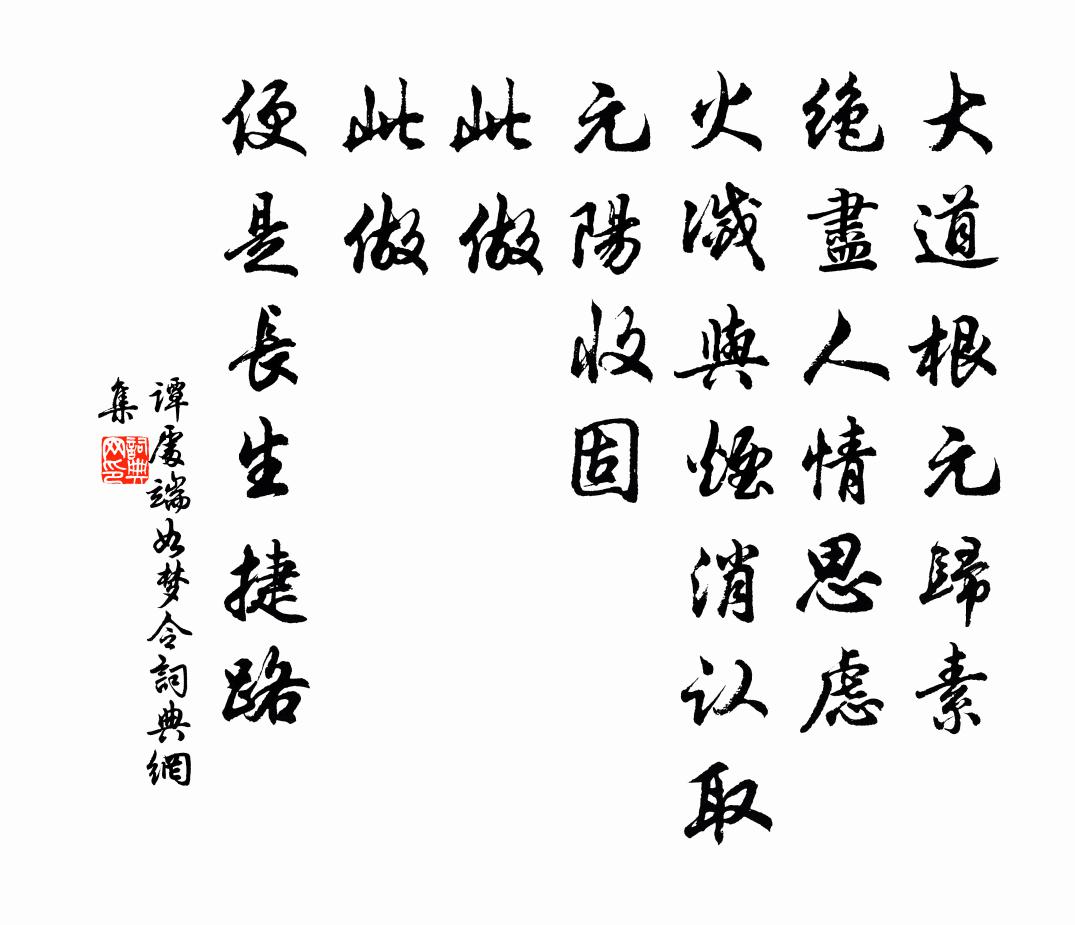 大道根元歸素
絶盡人情思慮
火滅與煙消认取
元陽收固
此做
此做
便是長生捷路
谭處端如梦令詞典網
集
詞典
网印